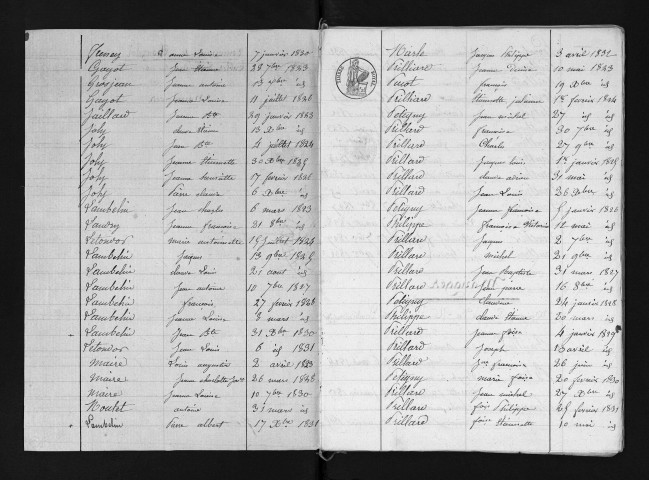 anne Louise 7 janvier 1830
Gayot Jean Etienne 28 7bre 1823
Grosjean Jeanne antoine 13 id
Gayot Jeanne Louise 11 juillet 1826
Gaillard Jeanne Bte 29 janvier 1823
Joly 13 Xbre id
Joly Jean Bte 4 juillet 1824
Joly Jeanne Etiennette 30 Xbre 1825
Joly Jeanne henriette 17 fevrier 1826
Joly Pierre claude 6 Xbre id
Lambelin Jean charles 6 mars 1823
Jeanne francoise 21 8bre id
Letondor marie antoinette 18 juillet 1824
Lambelin Jacques 13 9bre 1825
Lambelin claude Louis 21 aout id
Lambelin Jean antoine 10 7bre 1827
Lambelin francois 27 fevrier 1828
Lambelin Jeanne Louise 3 mars id
Lambelin Jean Bte 31 Xbre 1830
Letondor Jean Louis 6 id 1831
Maire Louis augustin 2 avril 1823
Maire Jeanne charlotte 26 mars 1828
Maire Jeanne Louise 10 7bre 1830
Moutet antoine 31 mars id
Lambelin Pierre albert 17 Xbre 1831
Marle Jacques Philippe 3 avril 1832
Jeanne Louise 10 mai 1823
francois 19 Xbre id
18 fevrier 1824
Petigny Jean michel 27 id id
Pillard francoise 30 7bre id
Pillard Charles 27 9bre id
Pillard Jacques Louis 1er janvier 1825
Pillard 31 mai id
Pillard Jean Louis 26 Xbre id
Petigny Jeanne francoise 8 janvier 1826
Philippe francoise Victoire 12 mai id
Pillard Jacques 2 7bre id
Pillard michel 21 9bre id
Pillard Jean Baptiste 31 mars 1827
Pillard Jean pierre 16 8bre id
Petigny Claudine 24 janvier 1828
Philippe claude Etienne 20 mars id
Pillard Jeanne foise 4 janvier 1829
Pillard Joseph avril id
Pillard Jne francoise 26 juin id
Petigny marie foise 20 fevrier 1830
Pillard Jean michel 27 Xbre id
Pillard fois Philippe 28 fevrier 1831
Pillard foise Etiennette 10 mai id